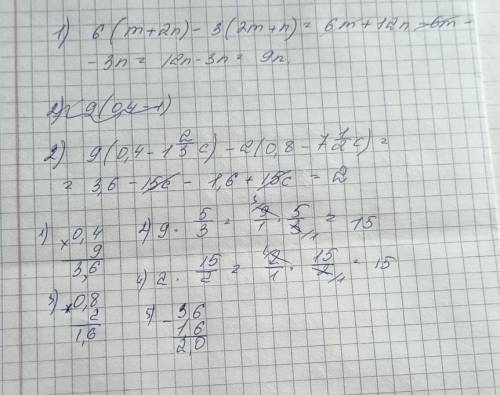 1) 6(m+2n)-3(2m+n)= 6m+12n-6m-
-3n= 12n-3n= 9n.
2) 9(0,4-1)
2) 9(0,4-1 2/3 c)-2(0,8-7 1/2 c)=
= 3,6-15c-1,6+15c = 2
1) ×0,4 2) 9·5/3= 9/1·5/3= 15
9
3,6 4) 2·15/2= 2/1·15/2= 15
3) ×0,8 5) -3,6
2 1,6
1,6 2,0